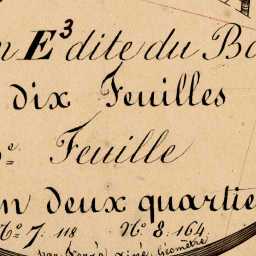 n E³ dite du Bo
dix Feuilles
e Feuille
n deux quartie
Nº 7. 118 Nº 8. 164.
par Géomètre